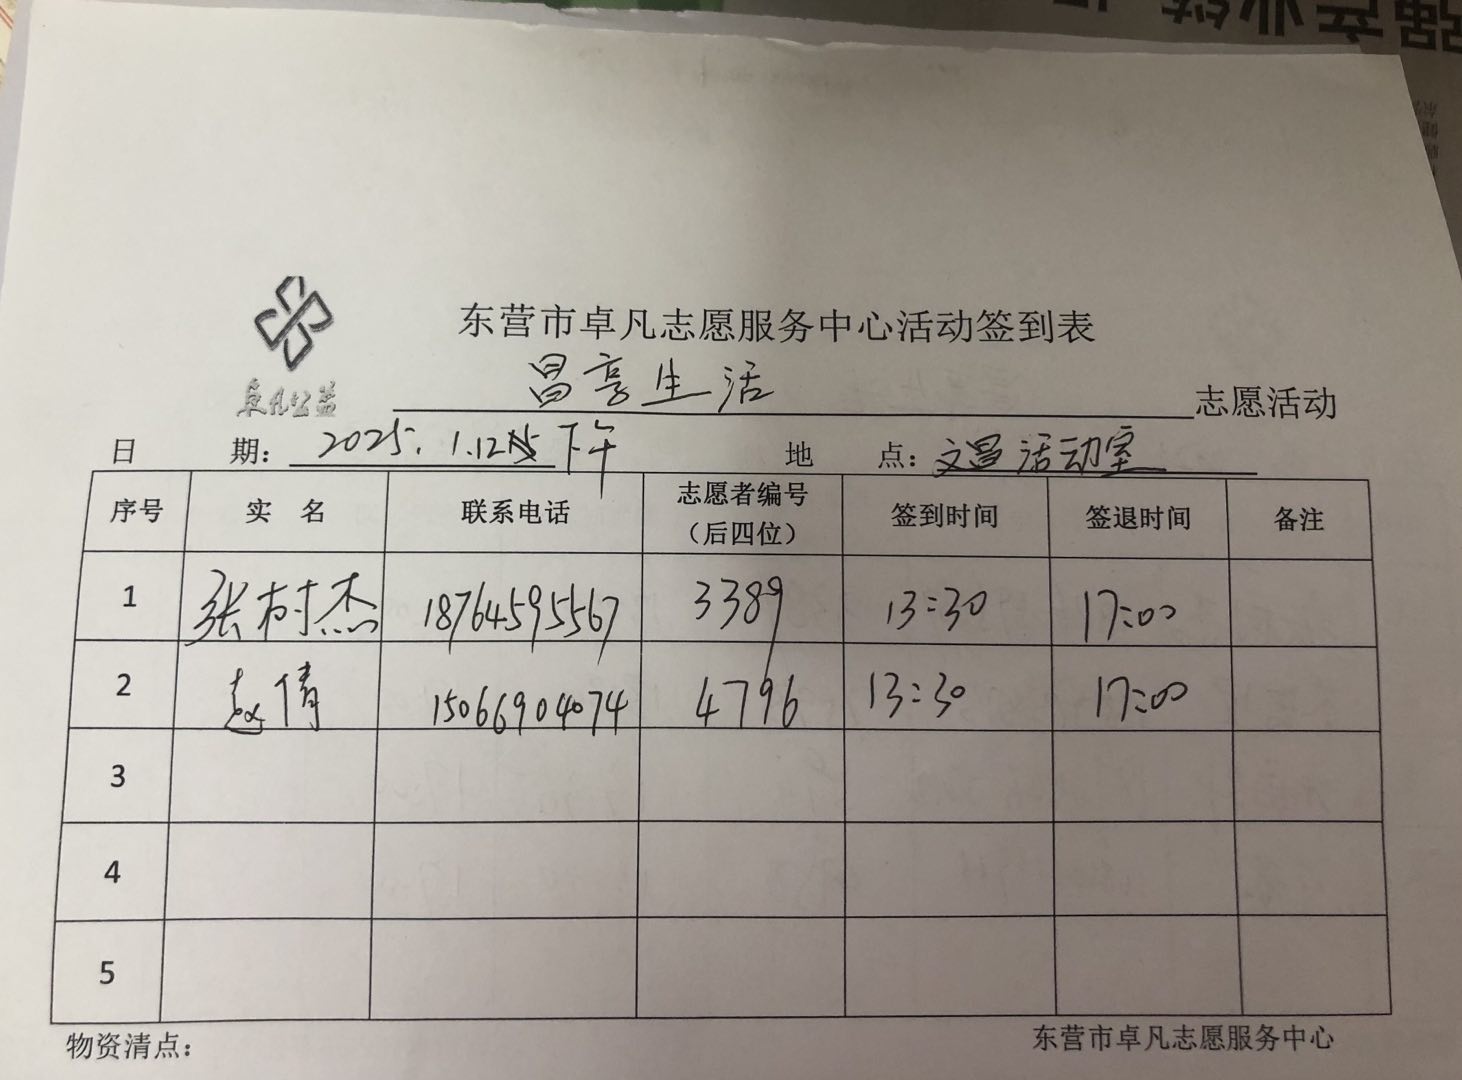 强产业链
东营市卓凡志愿服务中心活动签到表
卓凡公益
昌享生活 志愿活动
日 期: 2025.1.12 下午 地 点: 文昌活动室
序号 实 名 联系电话 志愿者编号（后四位） 签到时间 签退时间 备注
1 张树杰 18764595567 3389 13:30 17:00
2 赵倩 15066904074 4796 13:30 17:00
3
4
5
物资清点: 东营市卓凡志愿服务中心